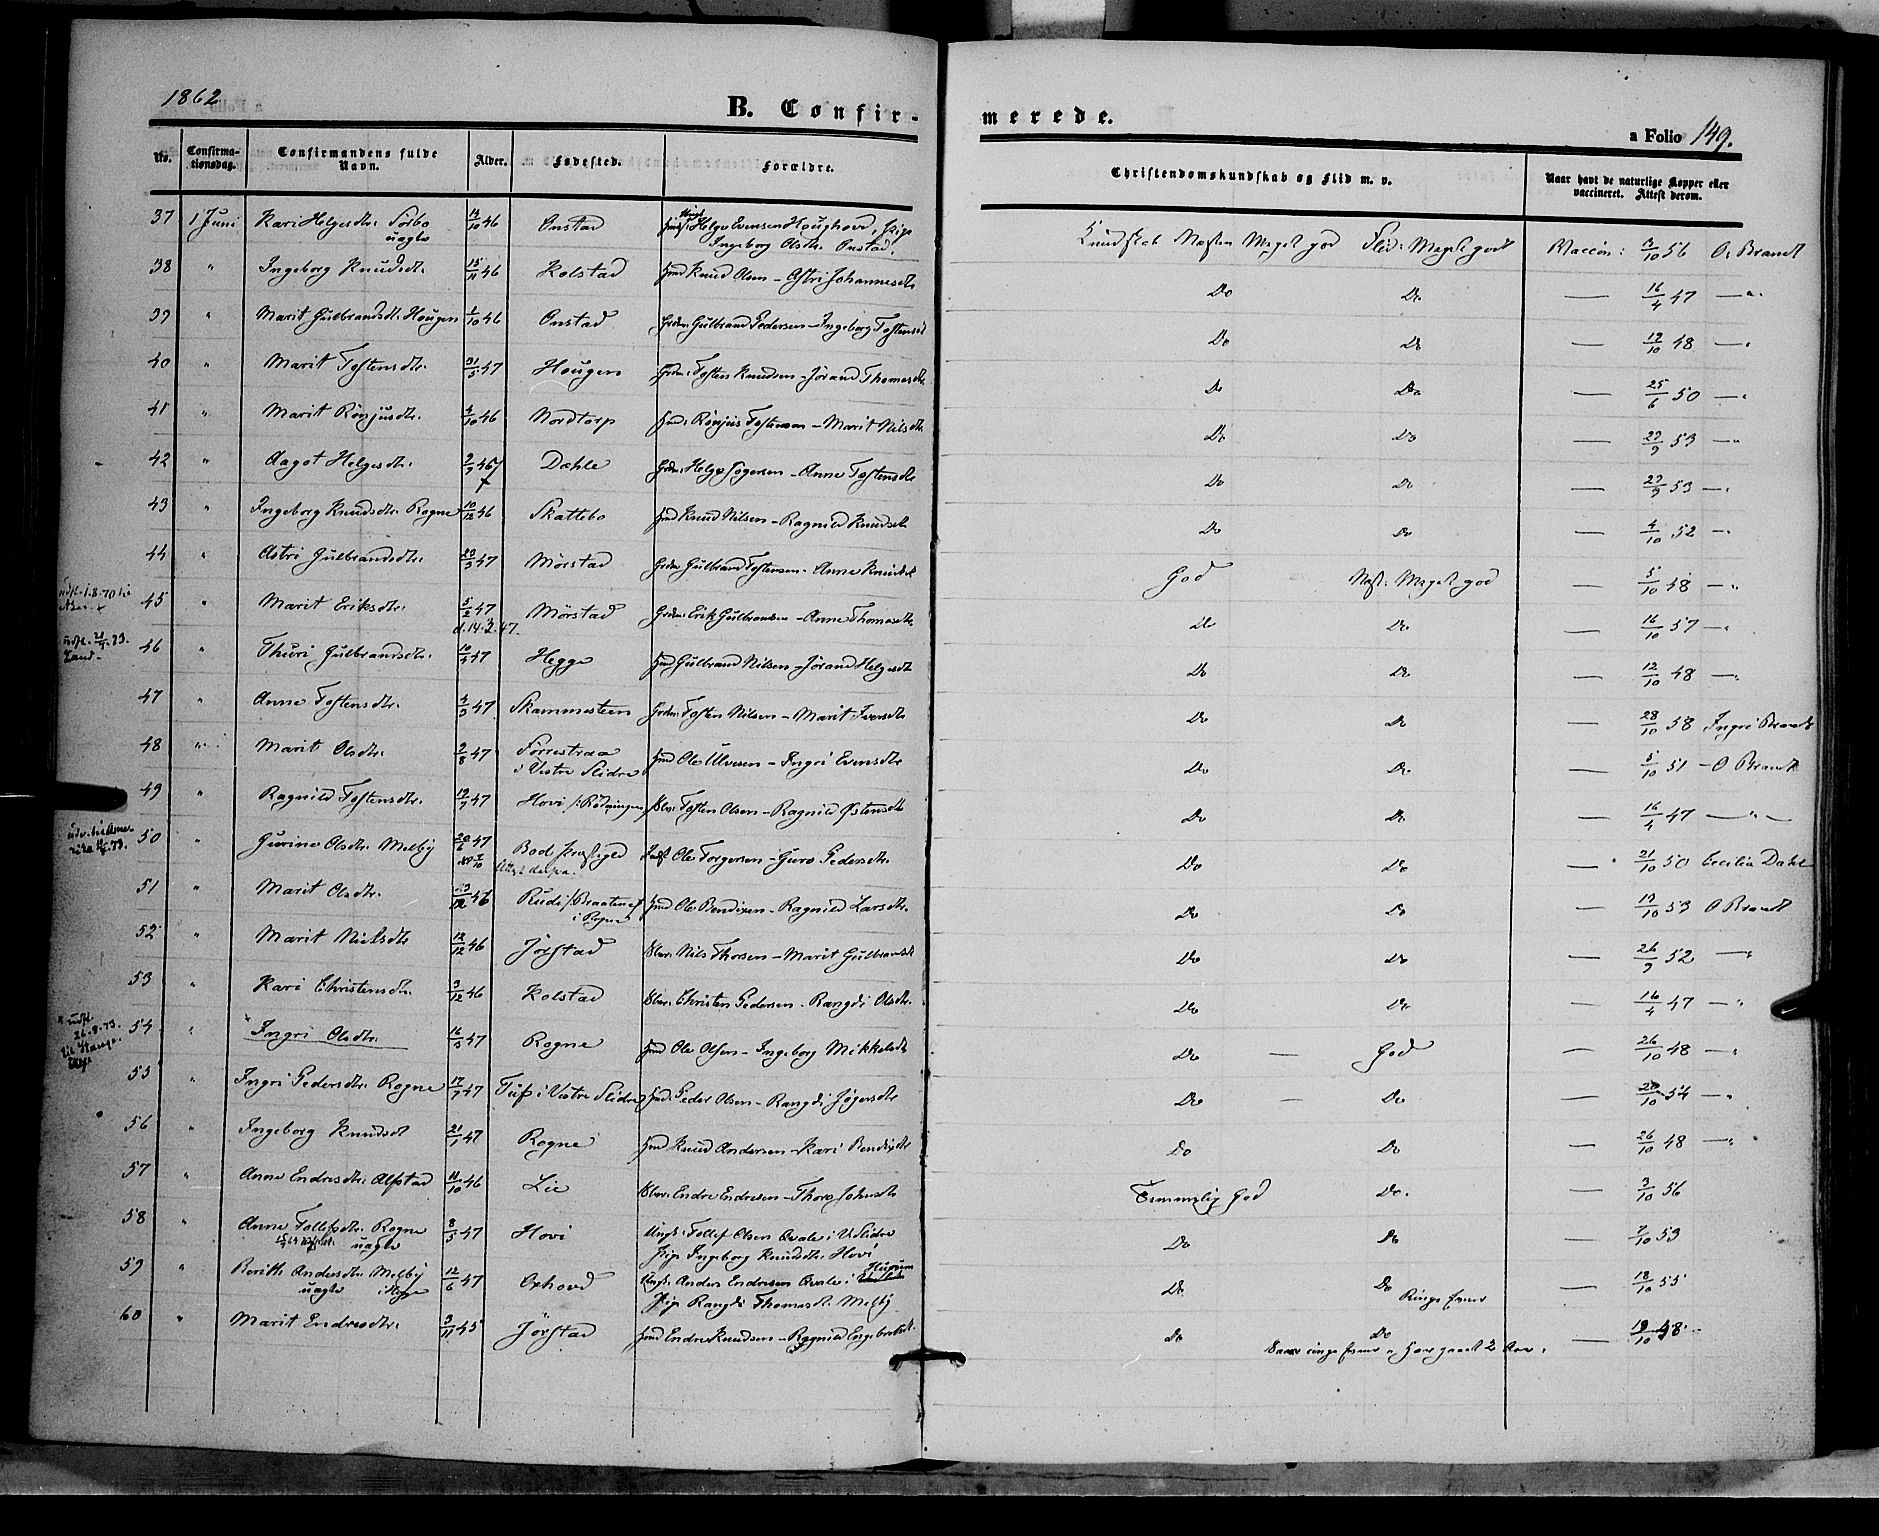 1862
B. Confir-
merede.
a Folio 149.
No. Confirmationsdag. Confirmandens fulde Navn. Alder. Fødested. Forældre. Christendomskundskab og Flid m. v. Naar havt de naturlige Kopper eller vaccineret. Attest derom.
37 1 Juni Kari Helgesdtr. Sørbo 46 Onstad Helge Evensen Houghovd, Pige Kundskab Næsten Meget god Flid: Meget godt Vaccin: 3/10 56 O. Brandt
uægte Ingeborg Olsdtr. Onstad
38 " Ingeborg Knudsdtr. 46 Kolstad Hmd Knud Olsen - Astri Johannesdtr Do Do — 16/4 47 — "
39 " Marit Gulbrandsdtr. Hougen 46 Onstad Grdm: Gulbrand Pedersen - Ingeborg Tostensd Do Do — 12/10 48 — "
40 " Marit Tostensdtr. 31/5 47 Hougen Grdm: Tosten Knudsen - Jørand Thomasdtr. Do Do — 25/6 50 — "
41 " Marit Rønjusdtr. 4/10 46 Nordtorp Hmd: Rønjus Tostensen - Marit Nilsdtr. Do Do — 27/9 53 — "
42 " Aagot Helgesdtr. Dæhle Grdm: Helge - Anne Tostensdtr Do Do — 27/9 53 — "
43 " Ingeborg Knudsdtr. Rogne 10/12 46 Skattebo Hmd Knud Nilsen - Ragnild Knudsdtr Do Do — 4/10 52 — "
44 " Astri Gulbrandsdtr. 23/3 47 Mørstad Grdm Gulbrand Tostensen - Anne Knudsdt God Næst: Meget god — 5/10 48 — "
45 " Marit Eriksdtr. 5/2 47 Mørstad Grdm: Erik Gulbrandsen - Anne Thomasdtr Do Do — 16/10 57 — "
d. 14.3.47.
46 " Thuri Gulbrandsdtr. 10/4 47 Hegge Hmd Gulbrand Nilsen - Jørand Helgesdt Do Do — 12/10 48 — "
47 " Anne Tostensdtr. 4/3 47 Skammesteen Grdm: Tosten Nilsen - Marit Iversdtr Do Do — 28/10 58 Ingri Brandt
48 " Marit Olsdtr. 2/8 47 Førrestraa Hmd Ole Ulvesen - Ingri Evensdtr Do Do — 5/10 51 - O Brandt
i Vestre Slidre
49 " Ragnild Tostensdtr. 47 Hovi Tosten Olsen - Ragnild Østensdtr Do Do — 16/4 47 — " —
50 " Gurine Olsdtr. Melby 20/6 47 Bod Præstegjeld Ole Torgersen - Guro Pedersdtr. Do Do — 21/10 50 Cecilia Dahl
51 " Marit Olsdtr. 46 Rudi Hmd Ole Bendixen - Ragnild Larsdtr. Do Do — 19/10 53 O Brandt
i Rogne
52 " Marit Nielsdtr 12/12 46 Jørstad Nils Thorsen - Marit Gulbrandsdt Do Do — 26/9 52 — "
53 " Kari Christensdtr. 3/12 46 Kolstad Christen Pedersen - Rangdi Olsdtr. Do Do — 16/4 47 — "
54 " Ingri Olsdtr. 16/3 47 Rogne Hmd Ole Olsen - Ingeborg Mikkelsdtr Do — God — 26/10 48 — "
55 " Ingri Pedersdtr. Rogne 17/7 47 Tuf i Vestre Slidre Hmd: Peder Olsen - Rangdi Do — Do — 20/10 54 — "
56 " Ingeborg Knudsdt 21/1 47 Rogne Hmd Knud Andersen - Kari Bendixdtr Do Do — 26/10 48 — "
57 " Anne Endresdtr. Alfstad 11/10 46 Lie Endre Endresen - Thora Johnsdtr Temmelig God Do. — 3/10 56
58 " Anne Tollefsdtr. Rogne 8/5 47 Hovi Ungk: Tollef Olsen Qvale i V Slidre Do Do — 7/10 53
uægte Pige Ingeborg Knudsdtr. Hovi
59 " Berith Andersdtr. Melby 12/6 47 Oxhovd Ungk: Anders Endresen Qvale i Hurum Do Do Ringe Evner — 18/10 55
uægte i Hegge Pige Rangdi Thomasdt. Melby
60 " Marit Endresdtr. 3/11 45 Jørstad Hmd Endre Knudsen - Ragnild Engebretsdt. Do Do — 19/10 48
ringe Evner, har gaaet 2 Aar.